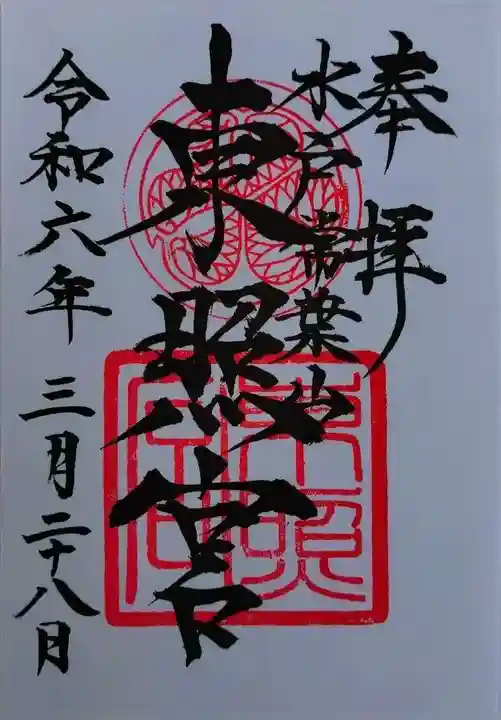 奉拝
水戸常葉山
東照宮
令和六年三月二十八日